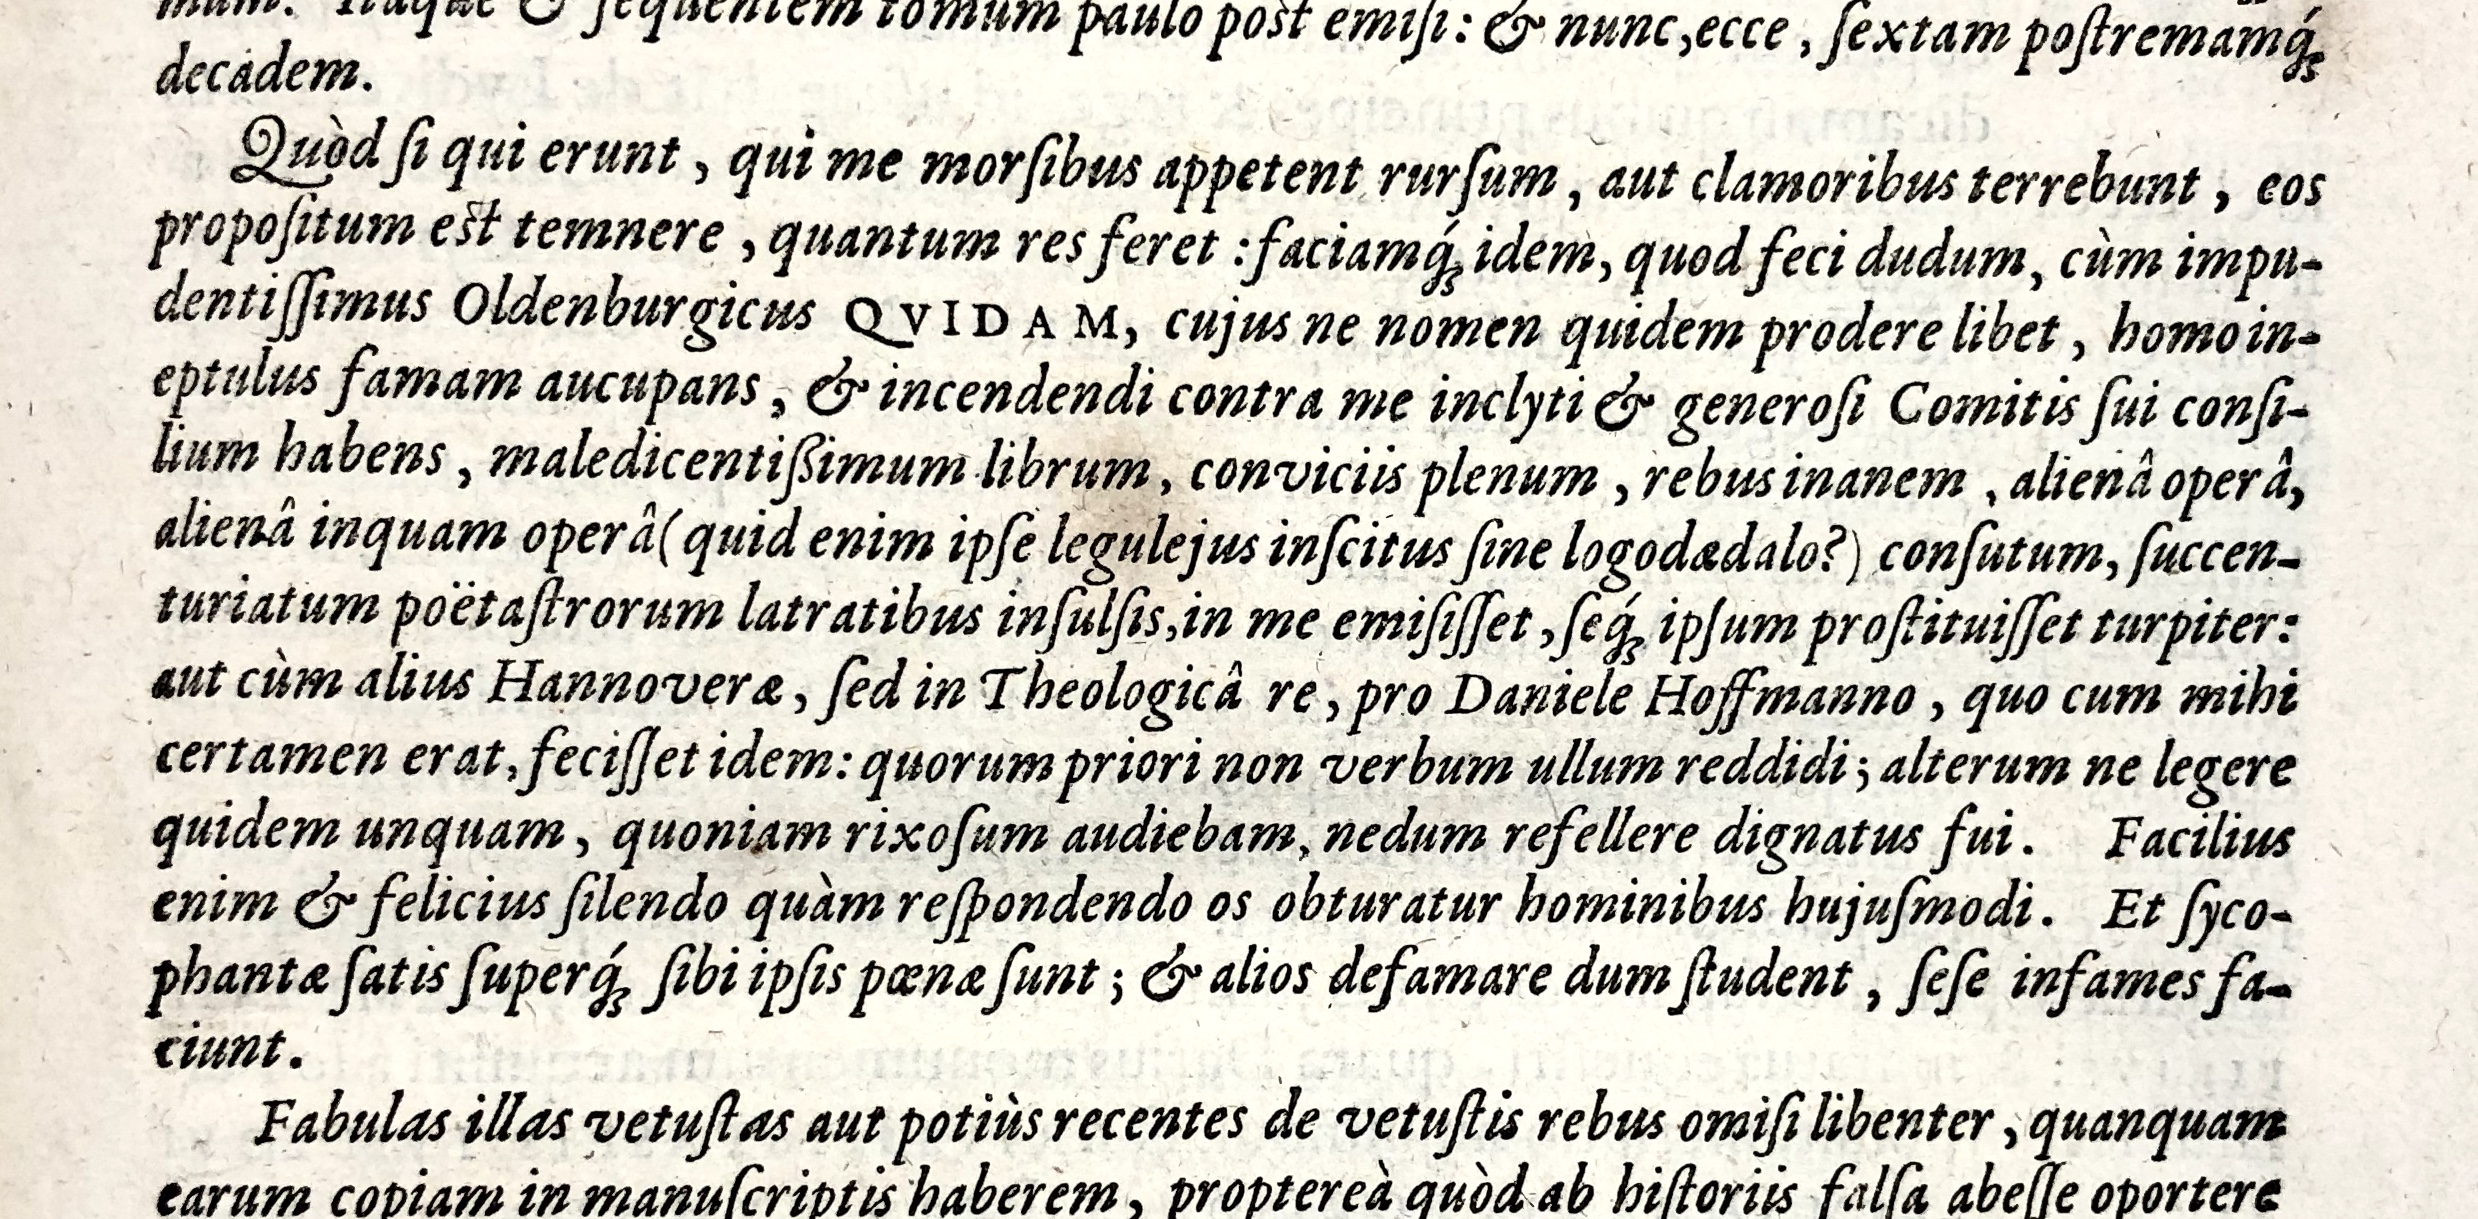 mum. Itaque & ſequentem tomum paulo poſt emiſi: & nunc, ecce, ſextam poſtremamq́ꝫ
decadem.
Quòd ſi qui erunt, qui me morſibus appetent rurſum, aut clamoribus terrebunt, eos
propoſitum eſt temnere, quantum res feret: faciamq́ꝫ idem, quod feci dudum, cùm impu-
dentiſſimus Oldenburgicus QVIDAM, cujus ne nomen quidem prodere libet, homo in-
eptulus famam aucupans, & incendendi contra me inclyti & generoſi Comitis ſui conſi-
lium habens, maledicentißimum librum, conviciis plenum, rebus inanem, alienâ operâ,
alienâ inquam operâ (quid enim ipſe legulejus inſcitus ſine logodædalo?) conſutum, ſuccen-
turiatum poëtaſtrorum latratibus inſulſis, in me emiſiſſet, ſeq́ꝫ ipſum proſtituiſſet turpiter:
aut cùm alius Hannoveræ, ſed in Theologicâ re, pro Daniele Hoffmanno, quo cum mihi
certamen erat, feciſſet idem: quorum priori non verbum ullum reddidi; alterum ne legere
quidem unquam, quoniam rixoſum audiebam, nedum refellere dignatus fui. Facilius
enim & felicius ſilendo quàm reſpondendo os obturatur hominibus hujuſmodi. Et ſyco-
phantæ ſatis ſuperq́ꝫ ſibi ipſis pœnæ ſunt; & alios defamare dum ſtudent, ſeſe infames fa-
ciunt.
Fabulas illas vetuſtas aut potiùs recentes de vetuſtis rebus omiſi libenter, quanquam
earum copiam in manuſcriptis haberem, proptereà quòd ab hiſtoriis falſa abeſſe oportere